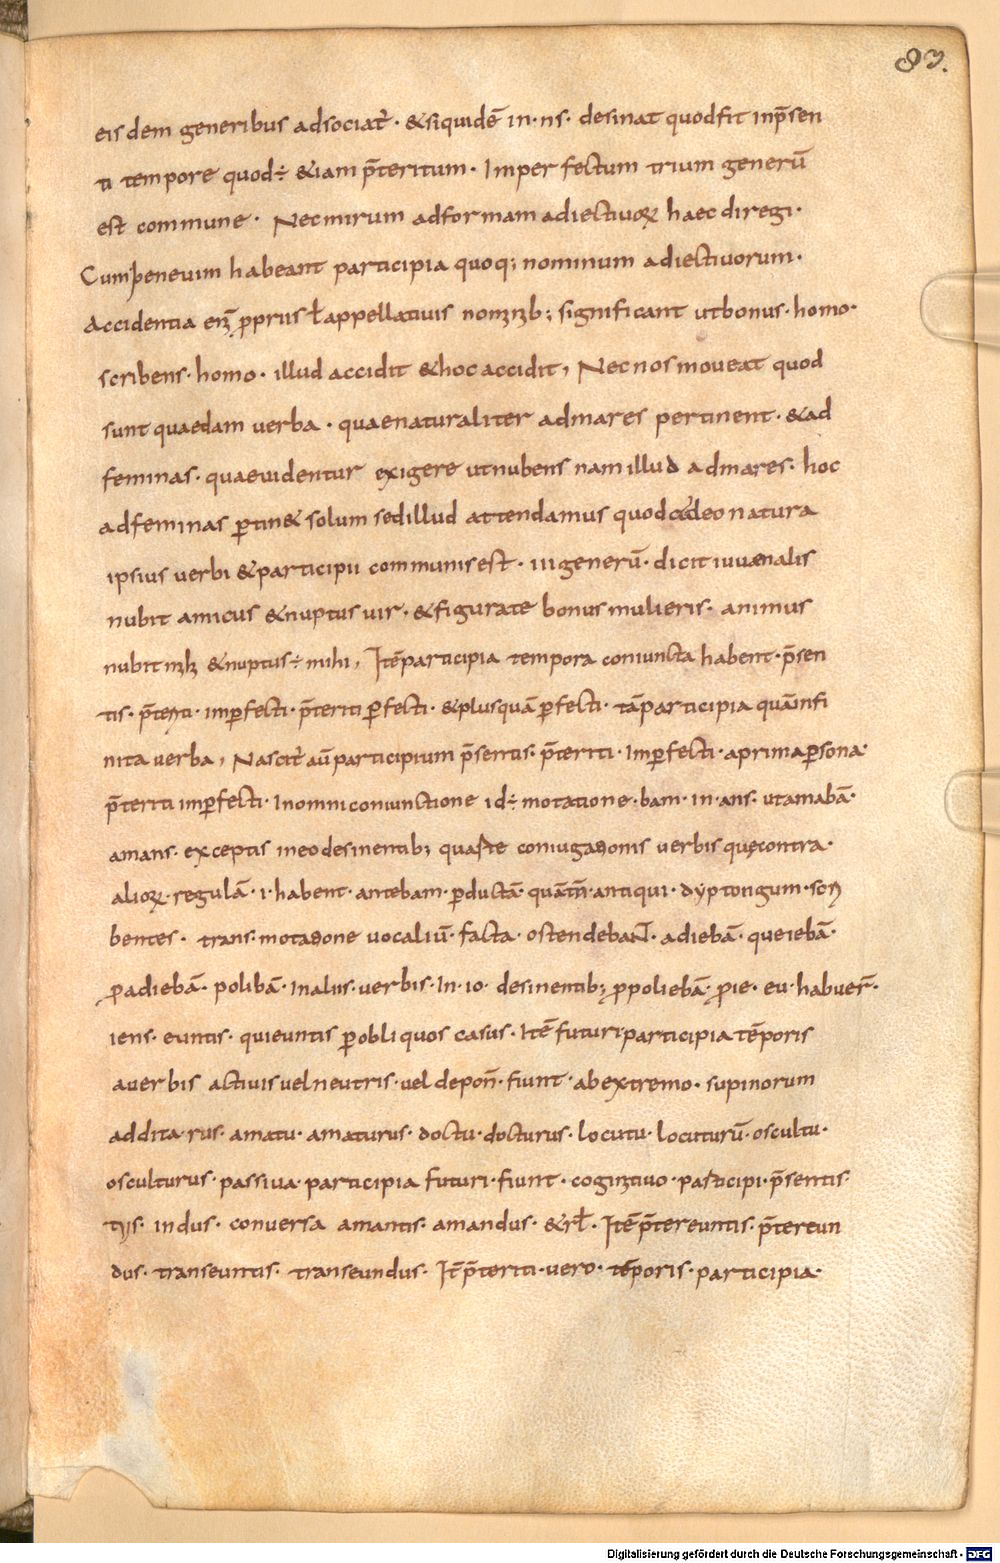 83.
eisdem generibus adsociat̄. &siquidē in·ns· desinat quodfit inp̄sen
ti tempore quod÷ &iam p̄teritum· Imperfectum trium generū
est commune· Necmirum adformam adiectiuoꝝ haec diregi·
Cum habeant participia quoq; nominum adiectiuorum·
Accidentia ꝓpriis ł appellatiuis significant utbonus·homo·
scribens·homo· illud accidit &hoc accidit, Necnos moueat quod
sunt quaedam uerba· quaenaturaliter admares pertinent· &ad
feminas· quaeuidentur exigere utnubens nam illud admares· hoc
adfeminas ꝑtin& solum sedillud attendamus natura
ipsius uerbi &participii communisest· iii generū· dicit iuuenalis
nubit amicus &nuptus uir· &figurate bonus mulieris· animus
nubit &nuptus÷ mihi, Itē participia tempora coniuncta habent· p̄sen
tis· imꝑfecti· p̄teriti ꝑfecti· &plusquā ꝑfecti· tā participia quāinfi
nita uerba, Nascit̄ aū participium p̄sentis· p̄teriti· Imꝑfecti· aprima ꝑsona·
p̄teriti imꝑfecti· Inomni coniunctione id÷ motatione·bam·in·ans· utamabā·
amans· exceptis ineodesinentib; coniugationis uerbis quęcontra·
alioꝝ·regulā·i·habent·antebam·ꝓductā·quātn̄·antiqui·dyptongum·scri
bentes· trans·motatione uocaliū·facta·ostendebaNT̄·adiebā·queiebā·
ꝓadiebā·polibā·Inaliis·uerbis·In·io·desinentib; ꝓpoliebā·ꝓie·eu·habuer̄·
iens·euntis·quieuntis ꝑobliquos casus·Itē futuri participia tēporis
auerbis actiuis uelneutris·uel depon̄·fiunt·abextremo·supinorum
addita·rus·amatu·amaturus·doctu·docturus·locutu·locuturū·oscultu·
osculturus·passiua·participia futuri·fiunt·participi·p̄sentis·
tis·indus·conuersa amantis·amandus·&rł·Itē p̄tereuntis·p̄tereun
dus·transeuntis·transeundus·It̄ p̄teriti·uero·tēporis·participia·
Digitalisierung gefördert durch die Deutsche Forschungsgemeinschaft - DFG